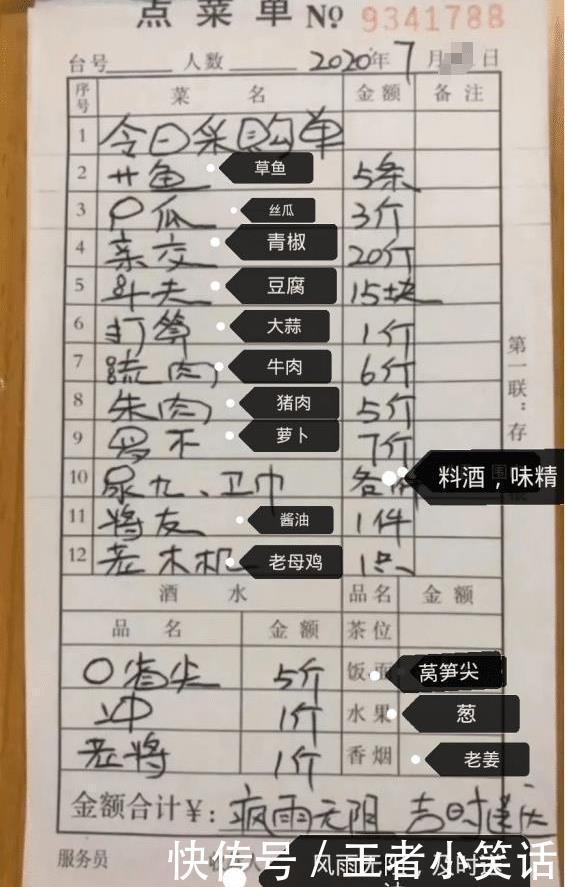 点菜单 No 9341788
台号 人数 2020年7月 日
序号 菜名 金额 备注
1 今日采购单
2 廾鱼 草鱼 5条
3 〇瓜 丝瓜 3斤
4 亲交 青椒 20斤
5 斗夫 豆腐 15块
6 打算 大蒜 1斤
7 流肉 牛肉 6斤
8 朱肉 猪肉 5斤
9 罗不 萝卜 7斤
10 尿九、卫巾 各 料酒，味精
11 将友 酱油 1件
12 老木机 老母鸡 1只
第一联：存根
酒水 品名 金额
品名 金额 茶位
〇省尖 5斤 饭面 莴笋尖
冲 1斤 水果 葱
老将 1斤 香烟 老姜
金额合计￥: 疯雨无阳 吉时送
服务员
风雨无阻 及时送
快传号/王者小笑话